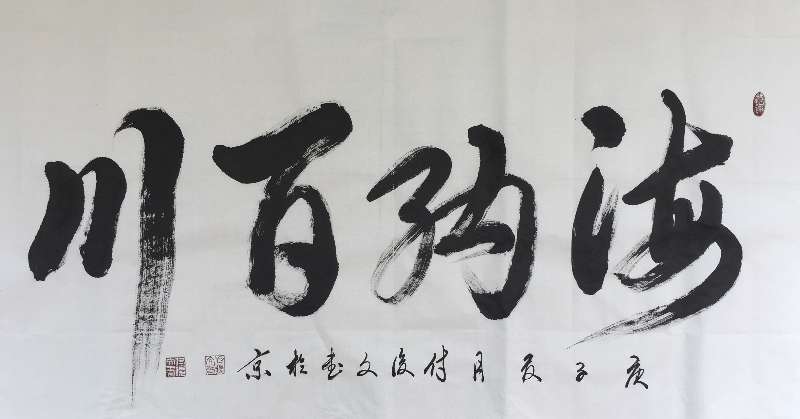 海纳百川
庚子夏月付俊文書於京